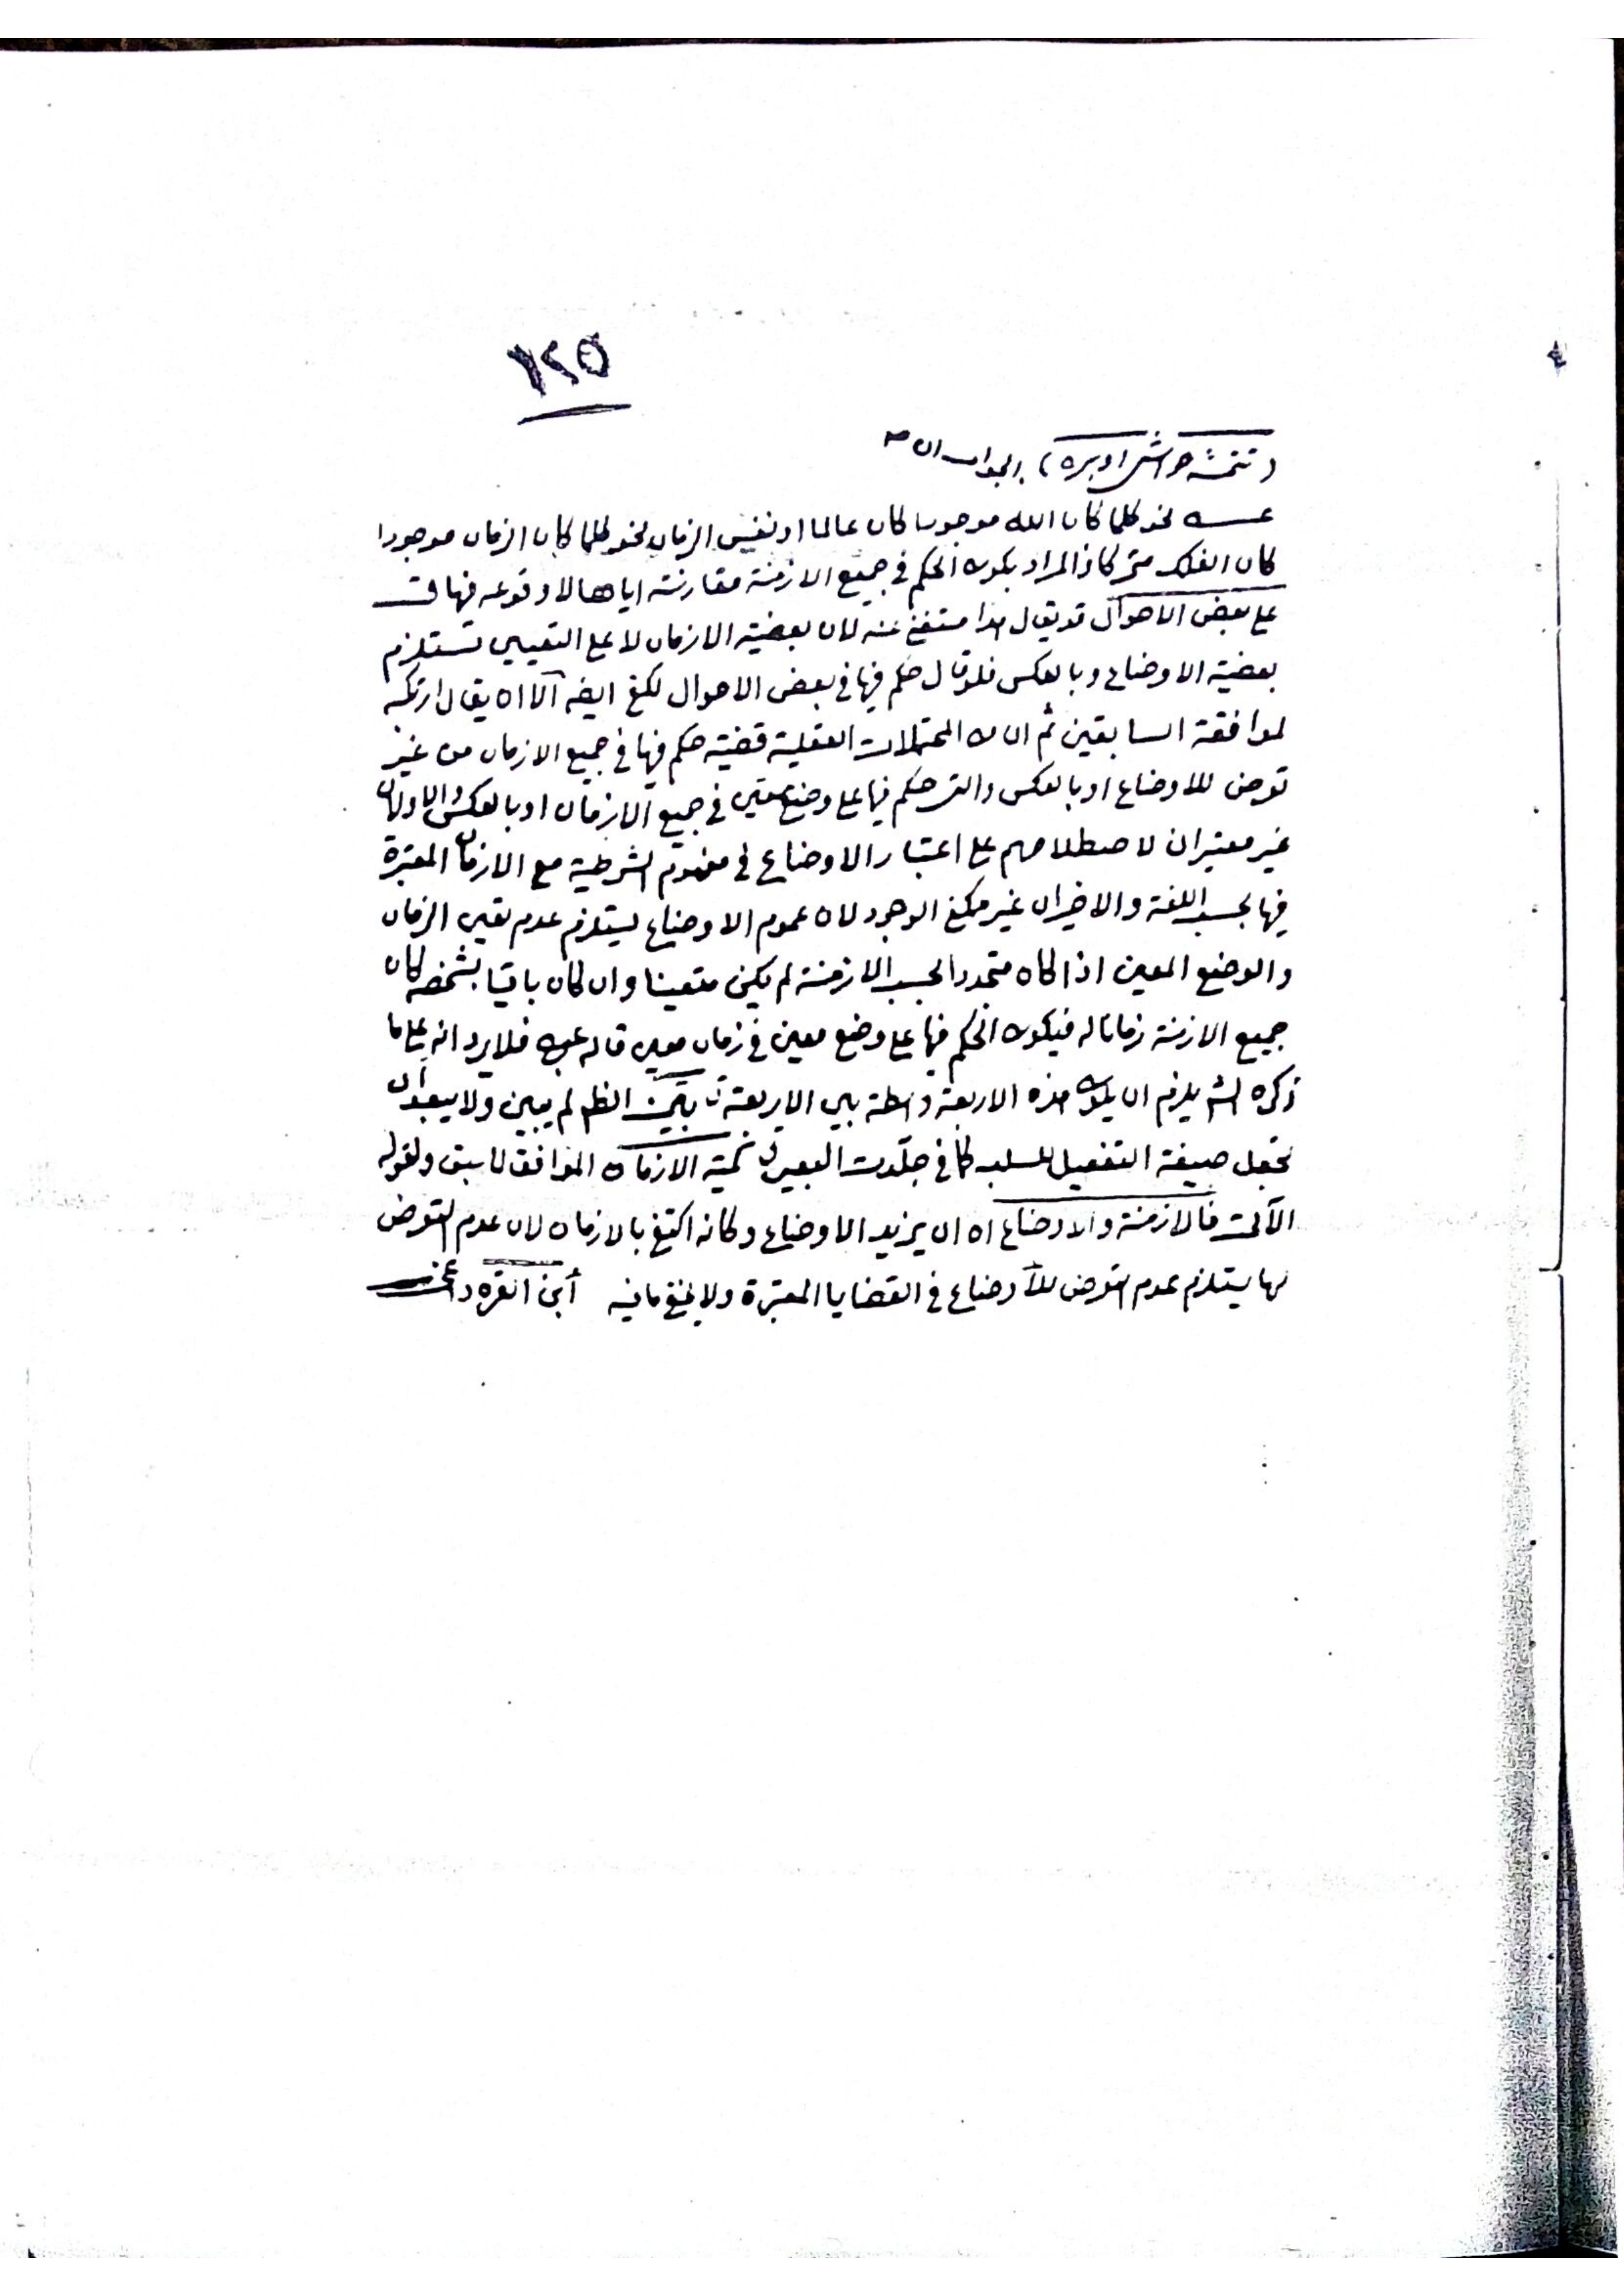 ١٢٥
(تتمة حواشي او بره) الجواب ان
عنـه نحو كلما كان الله موجودا كان عالما او نفس الزمان نحو كلما كان الزمان موجودا
كان الفلك متحركا ذا المراد بكون الحكم في جميع الازمنة مقارنته اياها لا وقوعه فيها ق
على بعض الاحوال قد يقال هذا مستغنى عنه لان بعضية الازمان لا على التعيين تستلزم
بعضية الاوضاع وبالعكس فلو قال حكم فيها في بعض الاحوال لكفى ايضا الا ان يقال ارتكبه
لموافقة السابقين ثم ان من المحتملات العقلية قضية حكم فيها في جميع الازمان من غير
تعرض للاوضاع او بالعكس والتي حكم فيها على وضع معين في جميع الازمان او بالعكس والاولان
غير معتبران لاصطلاحهم على اعتبار الاوضاع في مفهوم الشرطية مع الازمان المعتبرة
فيها بحسب اللغة والاخيران غير ممكن الوجود لان عموم الاوضاع يستلزم عدم تعين الزمان
والوضع المعين اذا كان متجددا بحسب الازمنة لم يكن متعينا وان كان باقيا بشخصه كان
جميع الازمنة زمانا له فيكون الحكم فيها على وضع معين في زمان معين قاله عبد فلا يرد انه على ما
ذكره الش يلزم ان يكون هذه الاربعة واسطة بين الاربعة تبيين الظ لم يبين ولا يبعد ان
تجعل صيغة التفعيل للسلب كما في جلدت البعير كمية الازمان الموافق لما سبق ولقوله
الآتي فالازمنة والاوضاع اه ان يزيد الاوضاع وكانه اكتفى بالازمان لان عدم التعرض
لها يستلزم عدم التعرض للاوضاع في القضايا المعتبرة ولا يخفى ما فيه أبن القره داغي